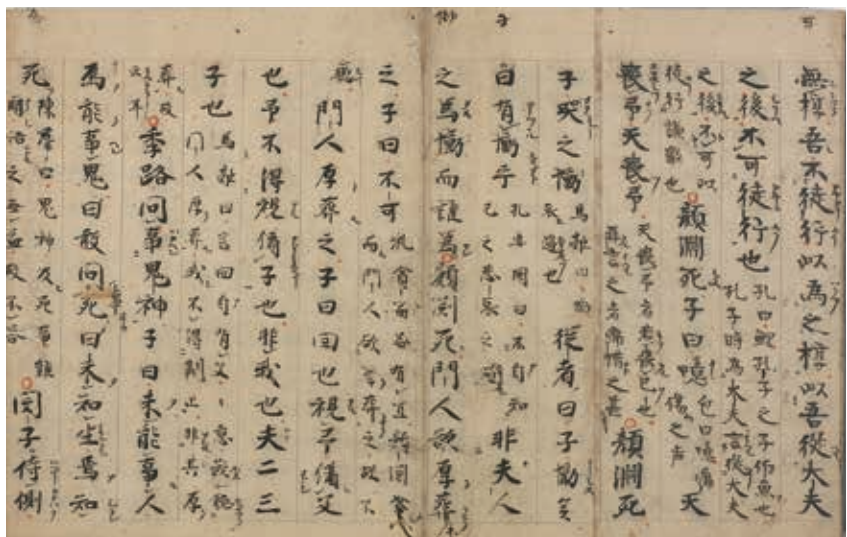 無椁吾不徒行以為之椁以吾從大夫
之後不可徒行也孔曰鯉孔子之子伯魚也
孔子時為大夫言從大夫
之後不可以
徒行謙辭也顏淵死子曰噫包曰噫痛
傷之声天
喪予天喪予天喪予者若喪己也
再言之者痛惜之甚顏淵死
子哭之慟馬融曰慟
哀過也從者曰子慟矣
曰有慟乎孔安國曰不自知
己之悲哀之過非夫人
之為慟而誰為顏淵死門人欲厚葬
之子曰不可礼貧富各有宜顏淵貧
而門人欲厚葬之故不
聴門人厚葬之子曰回也視予猶父
也予不得視猶子也非我也夫二三
子也馬融曰言回自有父々意欲聴
門人厚葬我不得制止非其厚
葬故
云耳季路問事鬼神子曰未能事人
焉能事鬼曰敢問死曰未知生焉知
死陳羣曰鬼神及死事難
明語之無益故不答閔子侍側